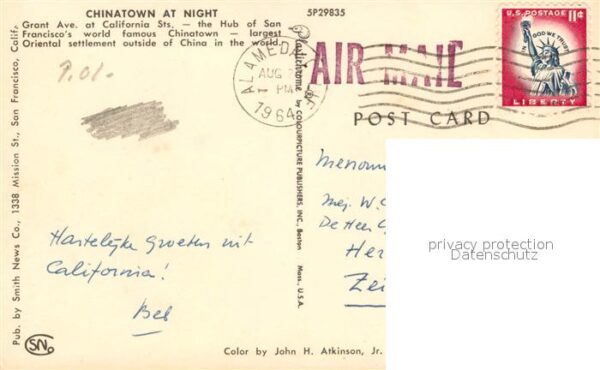 CHINATOWN AT NIGHT
Grant Ave. at California Sts. — the Hub of San
Francisco's world famous Chinatown — largest
Oriental settlement outside of China in the world.
5P29835
Pub. by Smith News Co., 1338 Mission St., San Francisco, Calif.
SN
Plastichrome by COLOURPICTURE PUBLISHERS, INC., Boston Mass., U.S.A.
ALAMEDA
AUG
PM
1964
AIR MAIL
U.S. POSTAGE 11¢
IN GOD WE TRUST
LIBERTY
POST CARD
Hartelijke Groeten uit
California!
Bel
Mej. W.
De Heer
Her
Zei
privacy protection
Datenschutz
Color by John H. Atkinson, Jr.